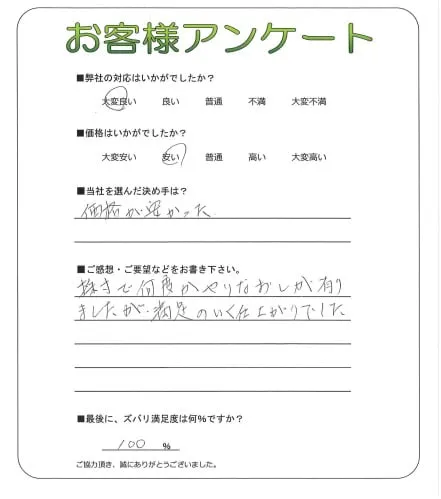 お客様アンケート
■弊社の対応はいかがでしたか？
大変良い 良い 普通 不満 大変不満
■価格はいかがでしたか？
大変安い 安い 普通 高い 大変高い
■当社を選んだ決め手は？
価格が安かった
■ご感想・ご要望などをお書き下さい。
で何度かやりなおしが有り
ましたが、満足のいく仕上がりでした
■最後に、ズバリ満足度は何％ですか？
100 ％
ご協力頂き、誠にありがとうございました。